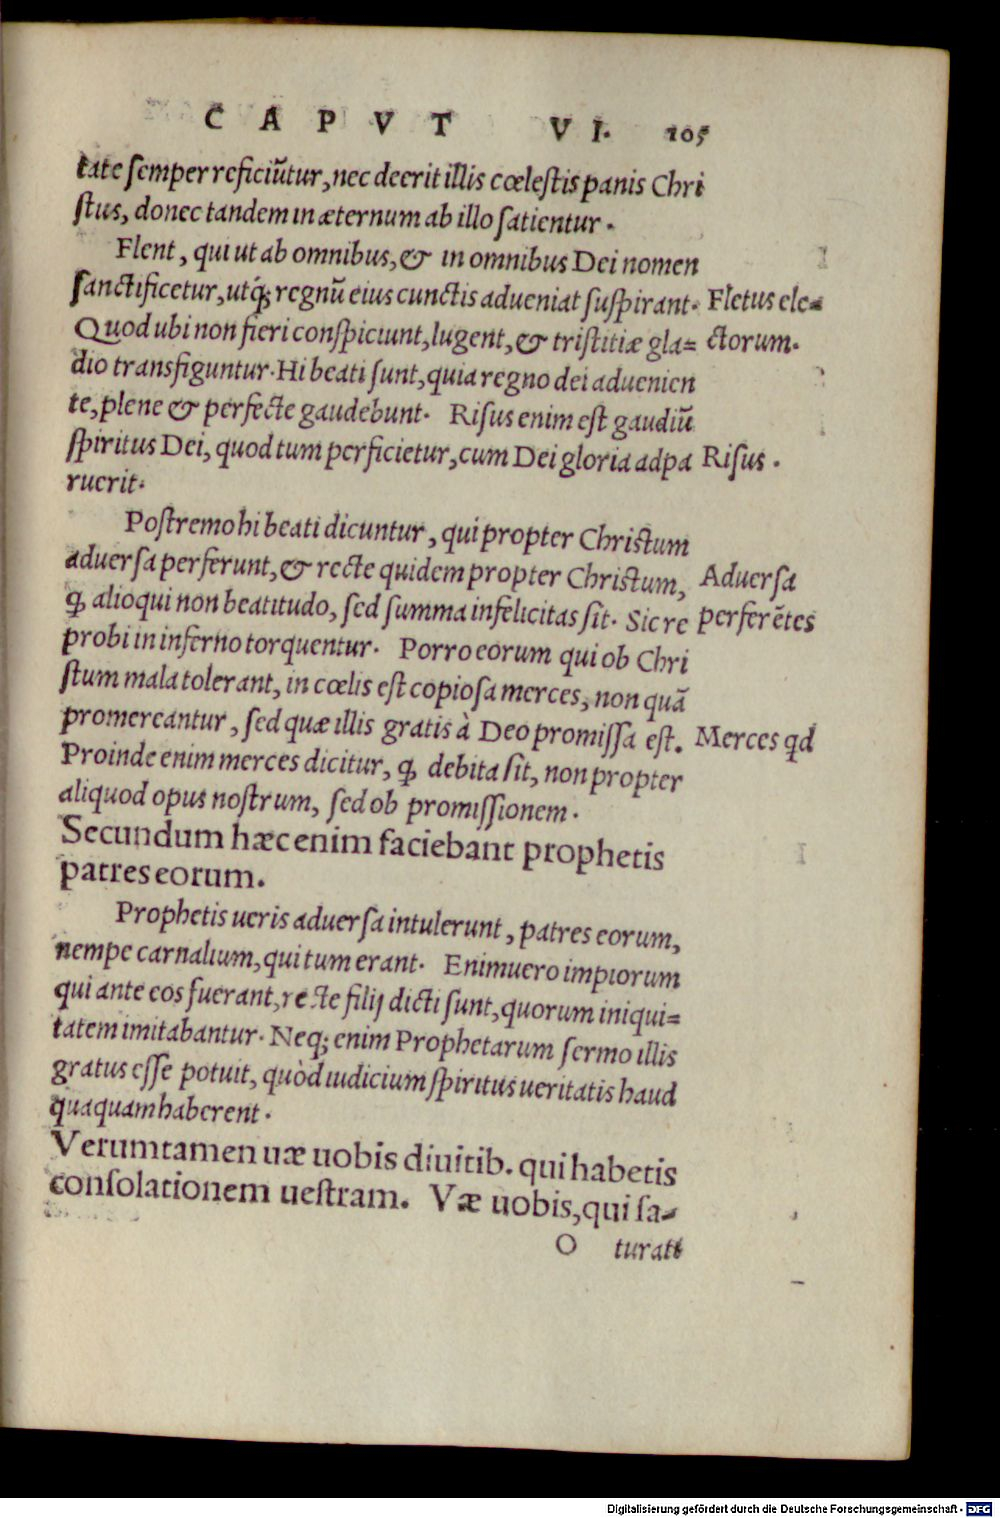 CAPVT VI. 105
tate semper reficiũtur, nec deerit illis cœlestis panis Chri
stus, donec tandem in æternum ab illo satientur.
Flent, qui ut ab omnibus, & in omnibus Dei nomen
sanctificetur, utq́; regnũ eius cunctis adueniat suspirant.
Fletus ele=
Quod ubi non fieri conspiciunt, lugent, & tristitiæ gla=
ctorum.
dio transfiguntur. Hi beati sunt, quia regno dei aduenien
te, plene & perfecte gaudebunt. Risus enim est gaudiũ
spiritus Dei, quod tum perficietur, cum Dei gloria adpa
Risus.
ruerit.
Postremo hi beati dicuntur, qui propter Christum
aduersa perferunt, & recte quidem propter Christum,
Aduersa
ꝙ alioqui non beatitudo, sed summa infelicitas sit. Sic re
perferẽtes
probi in inferno torquentur. Porro eorum qui ob Chri
stum mala tolerant, in cœlis est copiosa merces, non quã
promereantur, sed quæ illis gratis à Deo promissa est.
Merces qd
Proinde enim merces dicitur, ꝙ debita sit, non propter
aliquod opus nostrum, sed ob promissionem.
Secundum hæc enim faciebant prophetis
patres eorum.
Prophetis ueris aduersa intulerunt, patres eorum,
nempe carnalium, qui tum erant. Enimuero impiorum
qui ante eos fuerant, recte filij dicti sunt, quorum iniqui=
tatem imitabantur. Neq; enim Prophetarum sermo illis
gratus esse potuit, quòd iudicium spiritus ueritatis haud
quaquam haberent.
Veruntamen uæ uobis diuitib. qui habetis
consolationem uestram. Væ uobis, qui sa=
O turati
Digitalisierung gefördert durch die Deutsche Forschungsgemeinschaft - DFG